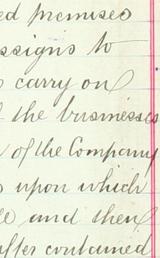 ed premises
ssigns to
carry on
the businesses
of the Company
upon which
and then
after contained